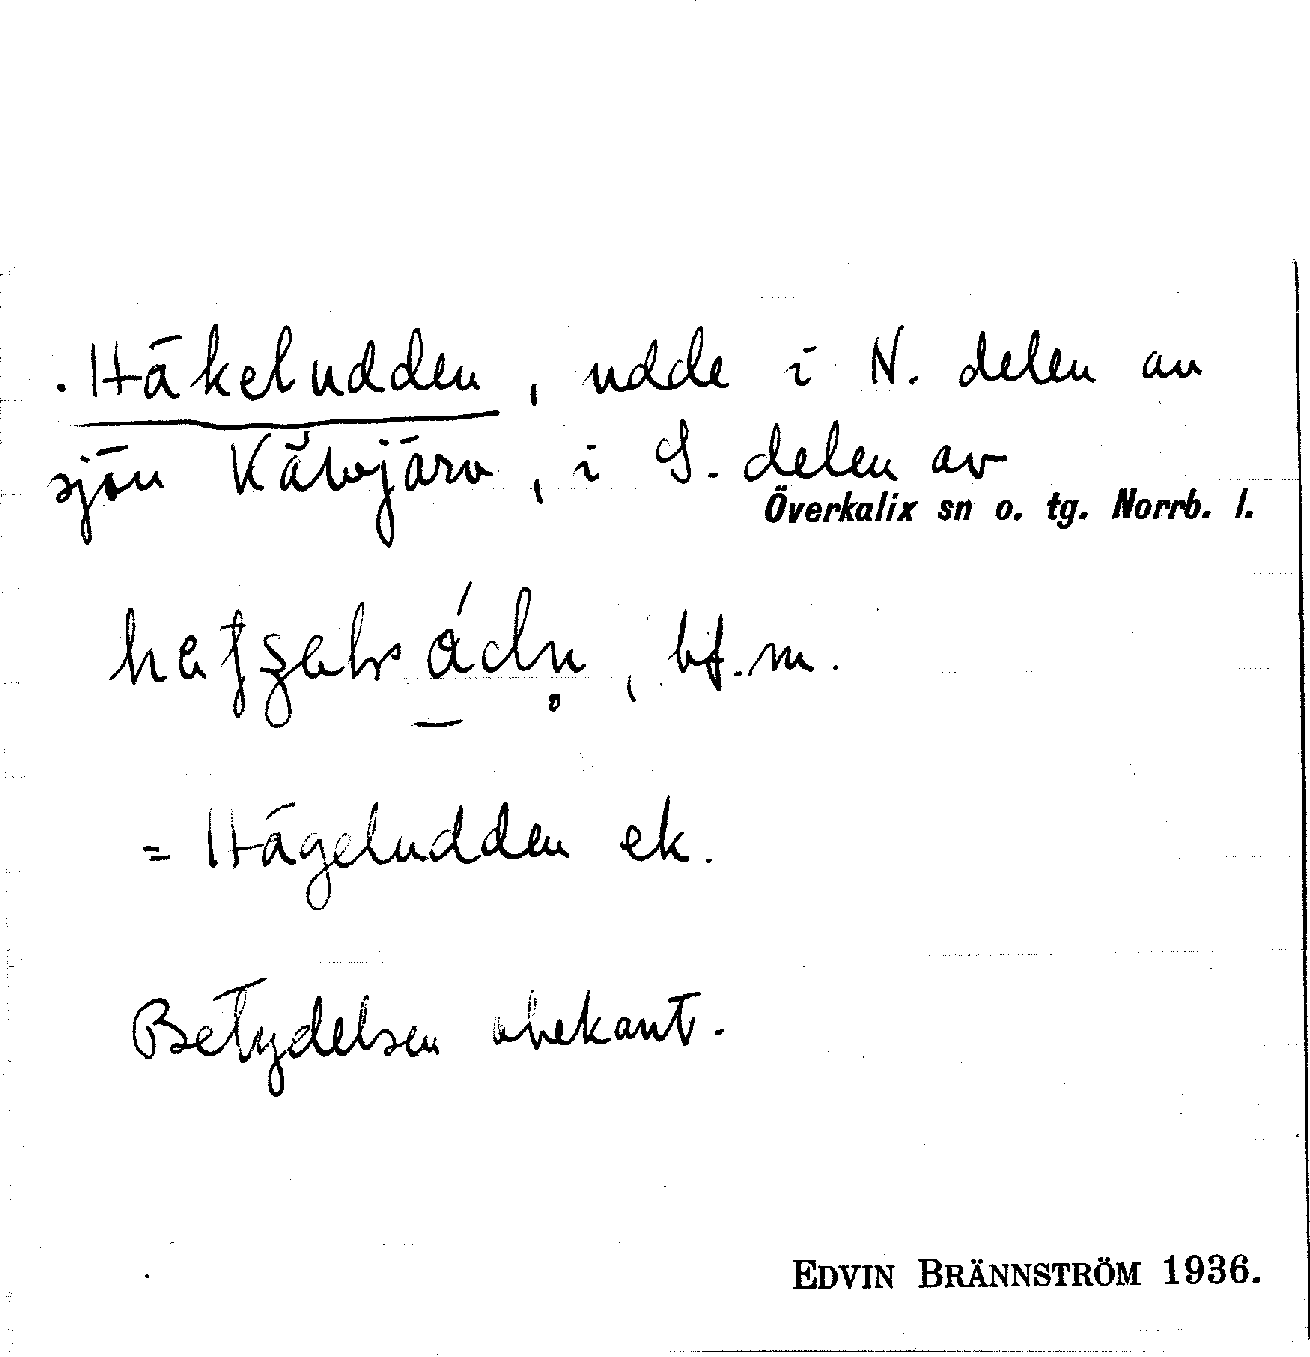 . Häkeludden, udde i N. delen av
sjön Kåvjärv, i S. delen av
Överkalix sn o. tg. Norrb. l.
bf. m.
= Hägeludden ek.
Betydelsen obekant.
EDVIN BRÄNNSTRÖM 1936.